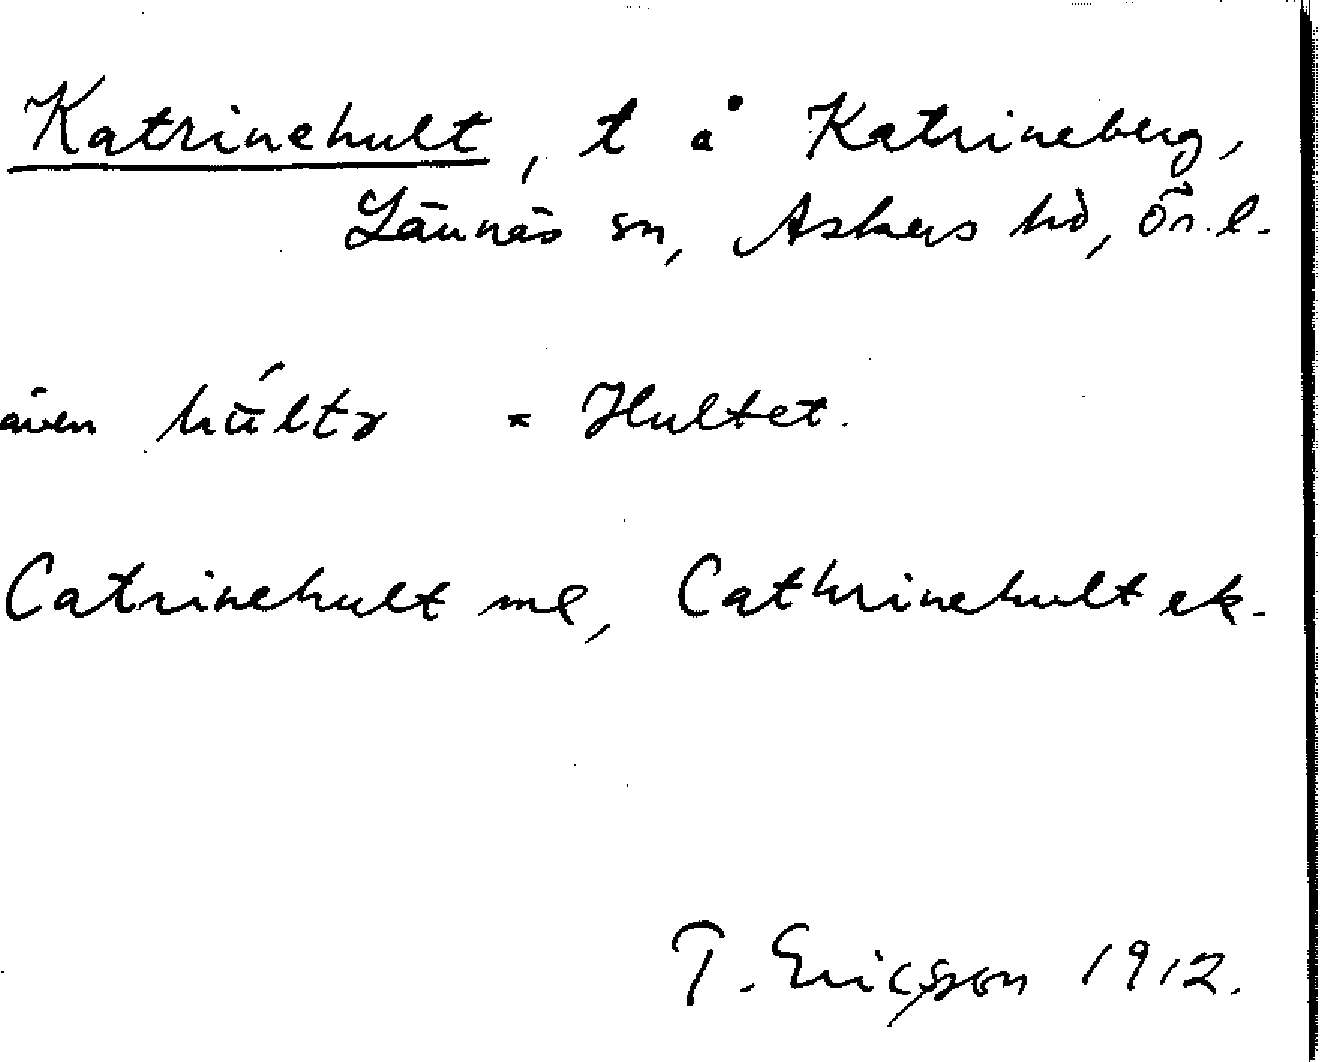 Katrinehult, t å Katrineberg,
Lännäs sn, Askers hd, Ör.l.
även = Hultet.
Catrinehult ml, Cathrinehult ek.
T. Ericsson 1912.